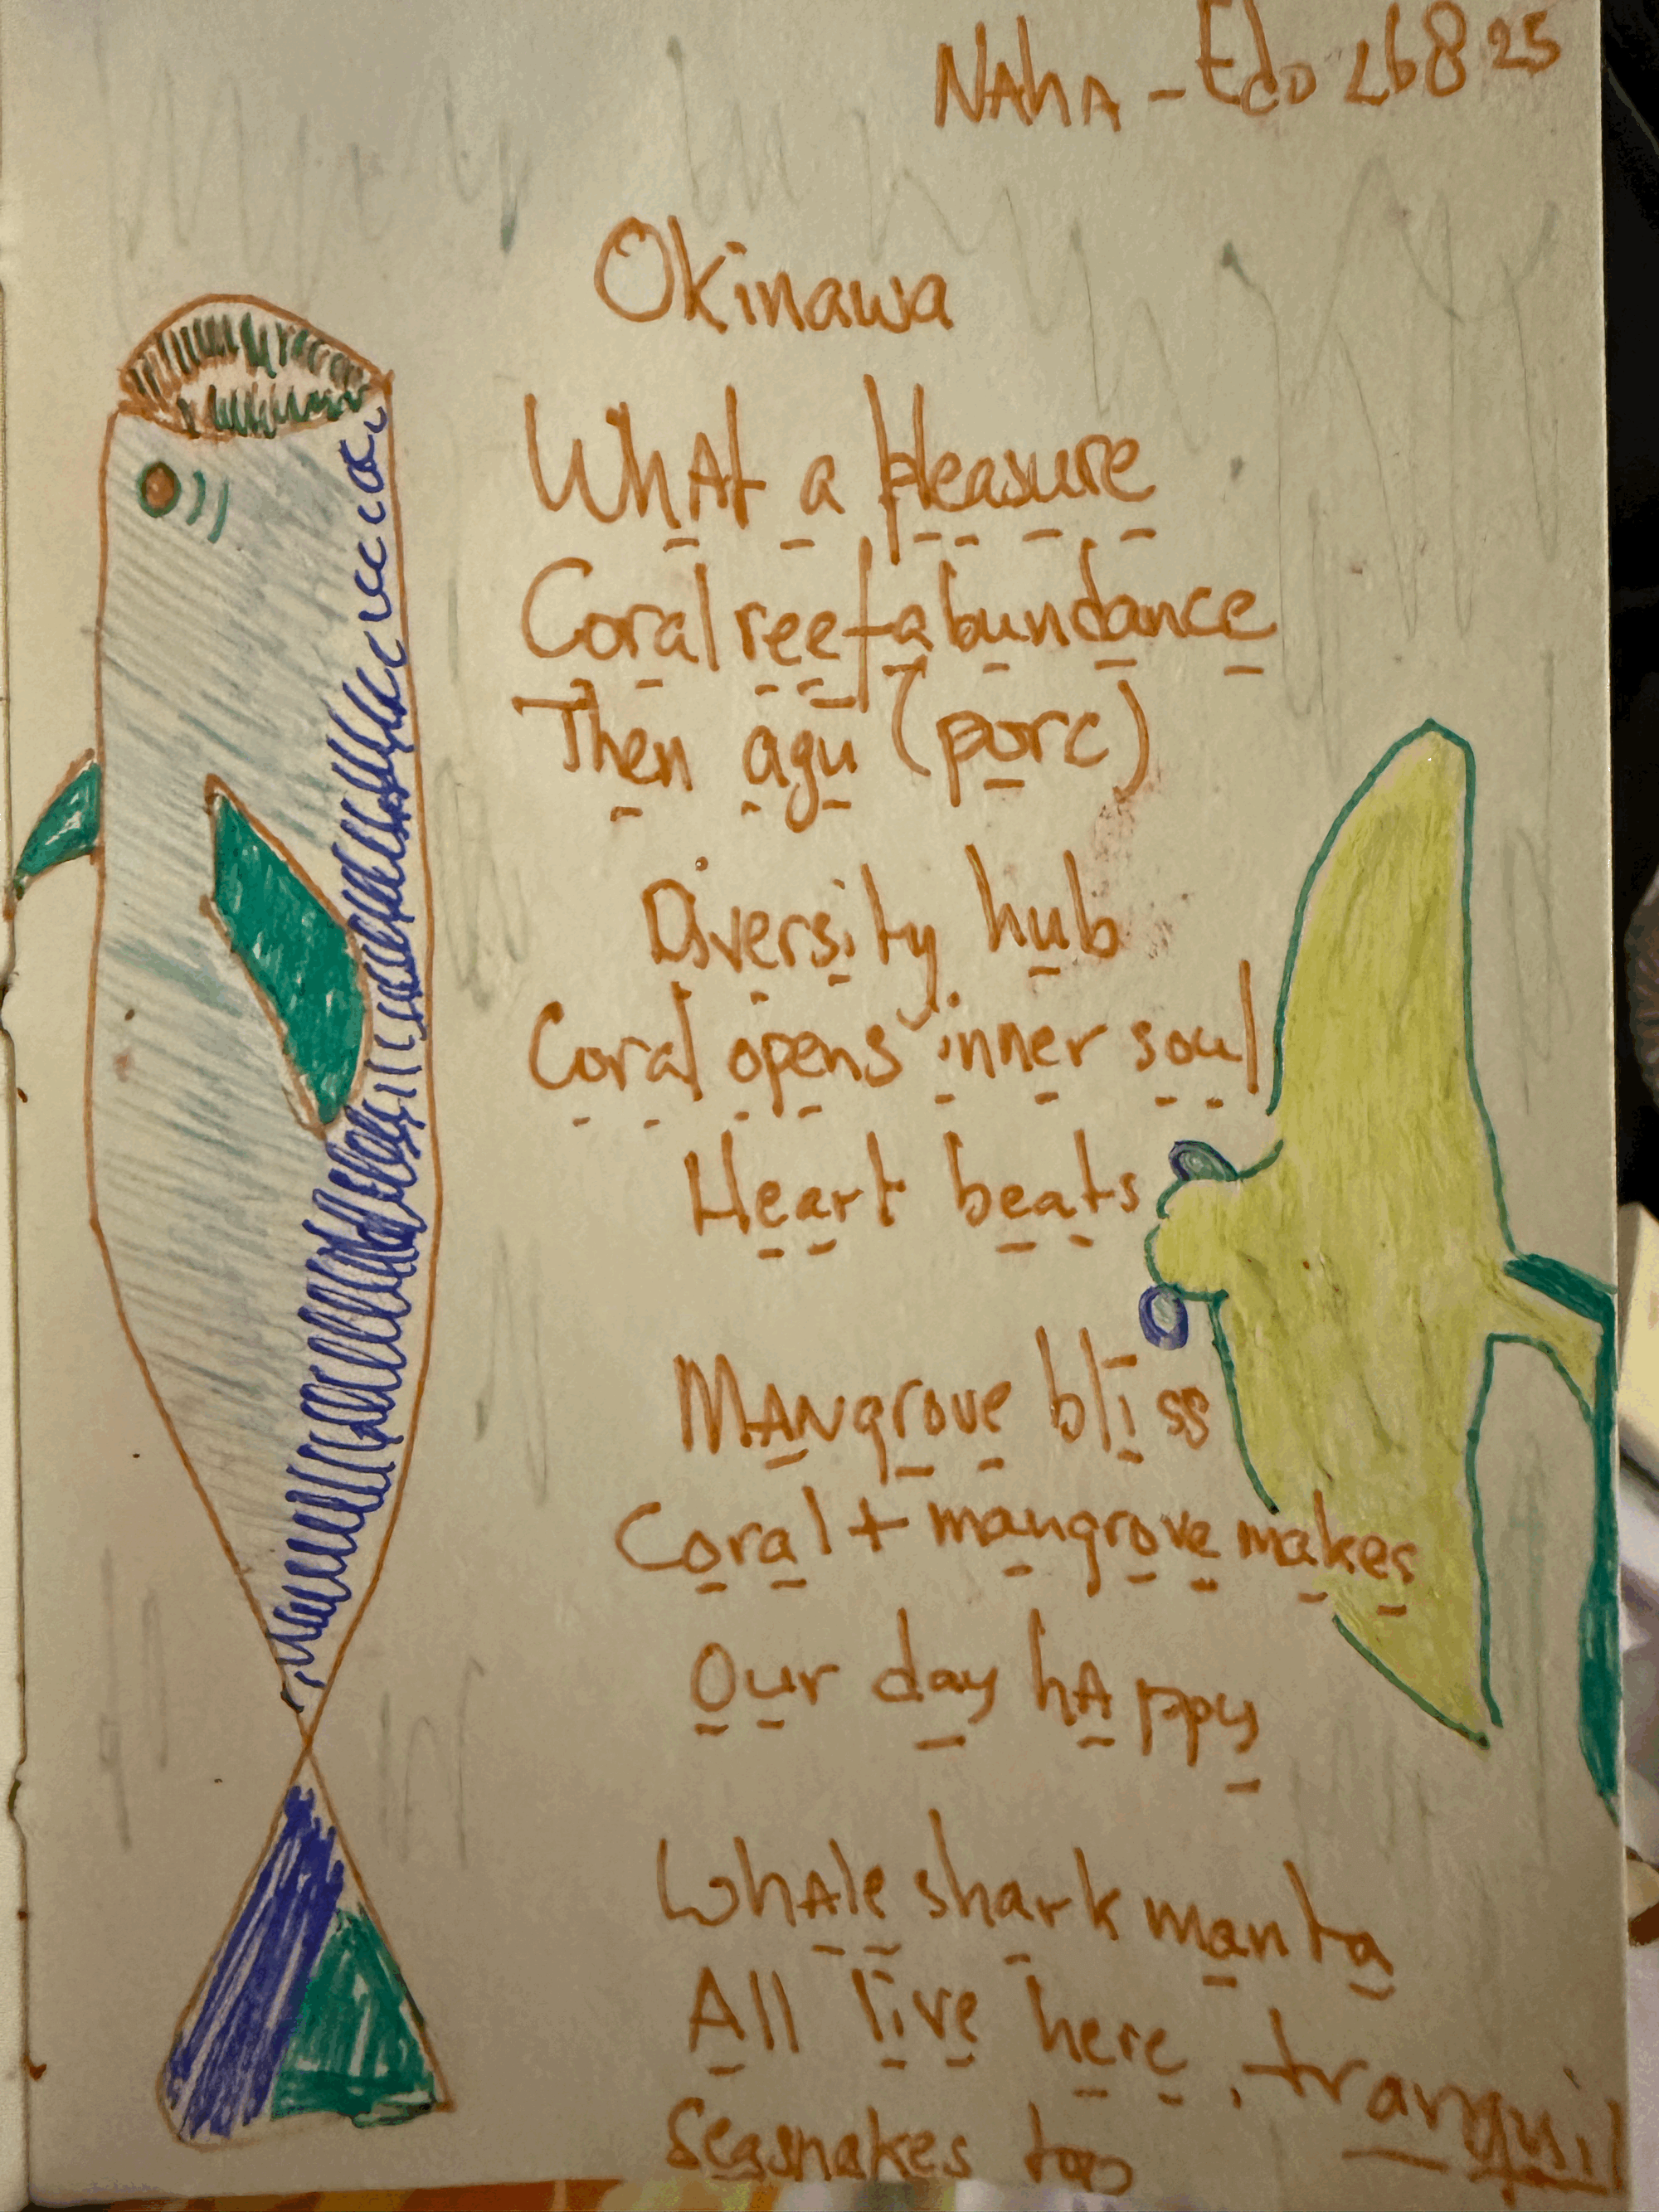 NAhA - Edo 26825
Okinawa
WhAt a pleasure
Coral reef abundance
Then agu (porc)
Diversity hub
Coral opens inner soul
Heart beats
MANgrove bliss
Coral + mangrove makes
Our day hAppy
WhAle shark manta
All live here, tranquil
Seasnakes too